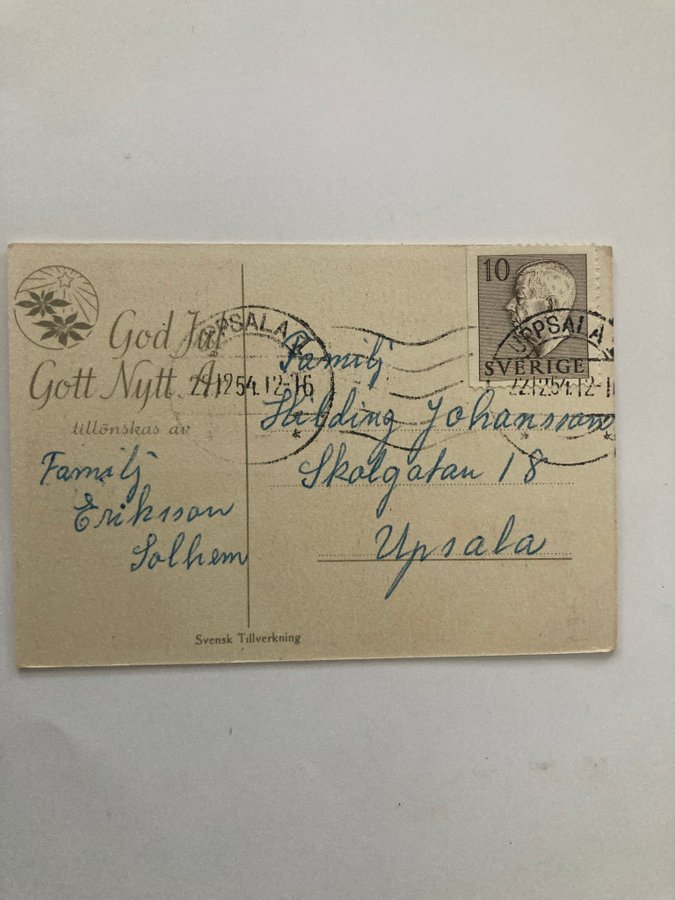 God Jul
Gott Nytt År
tillönskas av
Familj
Eriksson
Solhem
Svensk Tillverkning
10
SVERIGE
UPPSALA
22.12.54.12-16
UPPSALA
22.12.54.12-1
Familj
Hilding Johansson
Skolgatan 18
Upsala